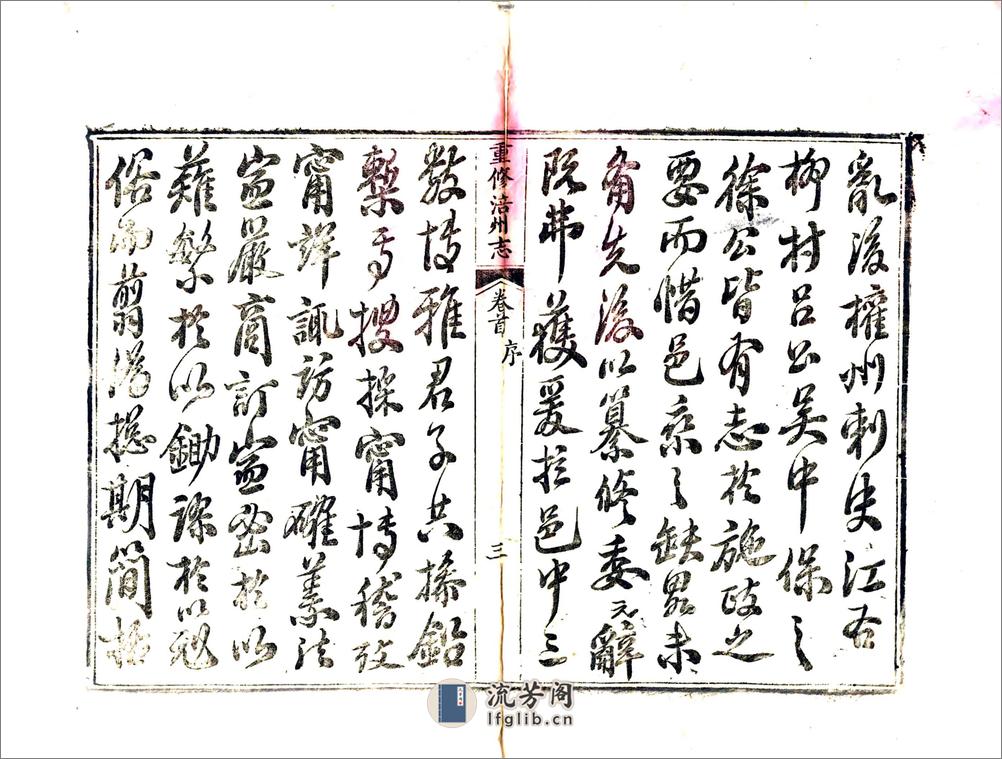 亂後權州刺史江右
柳村呂公吳中保之
徐公皆有志於施政之
要而惜邑乘之缺略未
備先後以纂修委元辭
既弗獲爰拉邑中三
重修涪州志 卷首 序 三
數博雅君子共操鉛
槧事搜採甯博稽攷
甯詳諏訪甯確義法
嚴商訂密於以
薙繁於以鋤於以
俗而翦總期簡括
流芳阁
lfglib.cn